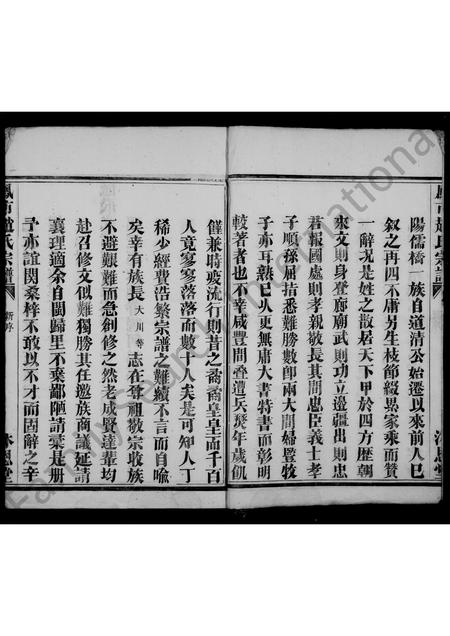 陽儒橋一族自道清公始遷以來前人已
敘之再四不庸另生枝節綴累家乘而贅
一辭況是姓之散居天下甲於四方歷朝
來文則身登廊廟武則功立邊疆出則忠
君報國處則孝親敬長其間忠臣義士孝
子順孫屈指悉難勝數卽兩大間婦豎牧
子亦耳熟已久更無庸大書特書而彰明
較著者也不幸咸豐間疊遭兵虎年歲飢
饉兼時疫流行則昔之喬喬皇皇而千百
人竟寥寥落落而數十人矣是可知人丁
稀少經費浩繁宗譜之難續不言而自喻
矣幸有族長大川等志在尊祖敬宗收族
不避艱難而急創修之然老成賢達輩均
赴召修文似難獨勝其任邀族商議延請
襄理適余自閩歸里不棄鄙陋請橐是册
予亦誼関桑梓不敢以不才而固辭之辛
鳳市趙氏宗譜
新序
沐恩堂
FamilySearch International